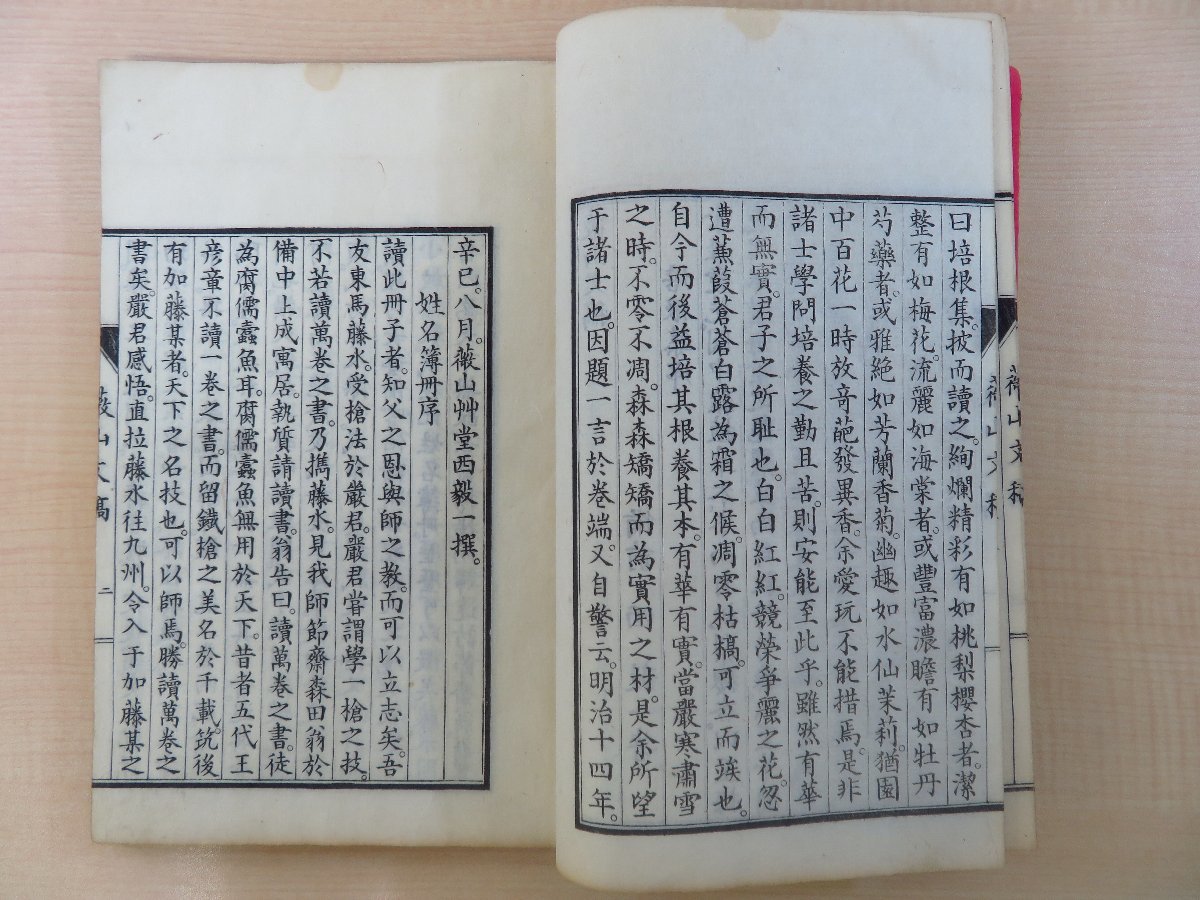 曰培根集。披而讀之。絢爛精彩有如桃梨櫻杏者。潔
整有如梅花。流麗如海棠者。或豐富濃贍有如牡丹
芍藥者。或雅絶如芳蘭香菊。幽趣如水仙茉莉。猶園
中百花一時放奇葩發異香。余愛玩不能措焉。是非
諸士學問培養之勤且苦。則安能至此乎。雖然有華
而無實。君子之所耻也。白白紅紅。競榮爭麗之花。忽
遭蒹葭蒼蒼白露為霜之候。凋零枯槁。可立而竢也。
自今而後益培其根養其本。有華有實。當嚴寒肅雪
之時。不零不凋。森森矯矯而為實用之材。是余所望
于諸士也。因題一言於卷端。又自警云。明治十四年。
辛巳。八月。薇山艸堂西毅一撰。
姓名簿冊序
讀此冊子者。知父之恩與師之教。而可以立志矣。吾
友東馬藤水。受搶法於嚴君。嚴君嘗謂學一槍之技。
不若讀萬卷之書。乃攜藤水。見我師節齋森田翁於
備中上成寓居。執質請讀書。翁告曰。讀萬卷之書。徒
為腐儒蠹魚耳。腐儒蠹魚無用於天下。昔者五代王
彦章不讀一卷之書。而留鐵槍之美名於千載。筑後
有加藤某者。天下之名技也。可以師焉。勝讀萬卷之
書矣。嚴君感悟。直拉藤水往九州。令入于加藤某之
薇山文稿
二